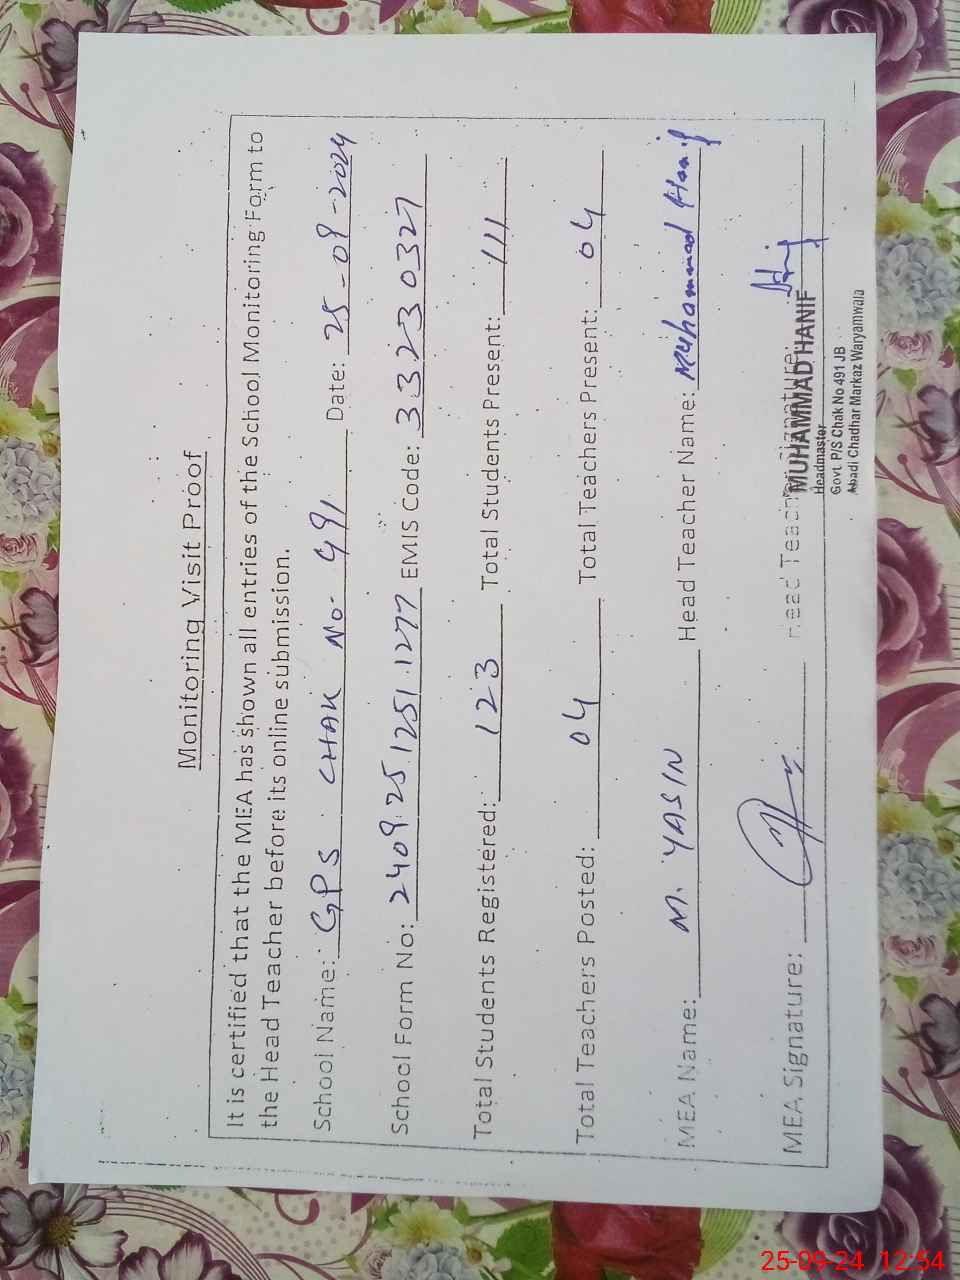 Monitoring Visit Proof
It is certified that the MEA has shown all entries of the School Monitoring Form to
the Head Teacher before its online submission.
School Name: GPS CHAK No. 491 Date: 25-09-2024
School Form No: 2409251251277 EMIS Code: 33230327
Total Students Registered: 123 Total Students Present: 111
Total Teachers Posted: 04 Total Teachers Present: 04
MEA Name: M. YASIN Head Teacher Name: Muhammad Hanif
MEA Signature: Head Teacher Signature:
MUHAMMAD HANIF
Headmaster
Govt. P/S Chak No 491 JB
Abadi Chadhar Markaz Waryamwala
25-09-24 12:54